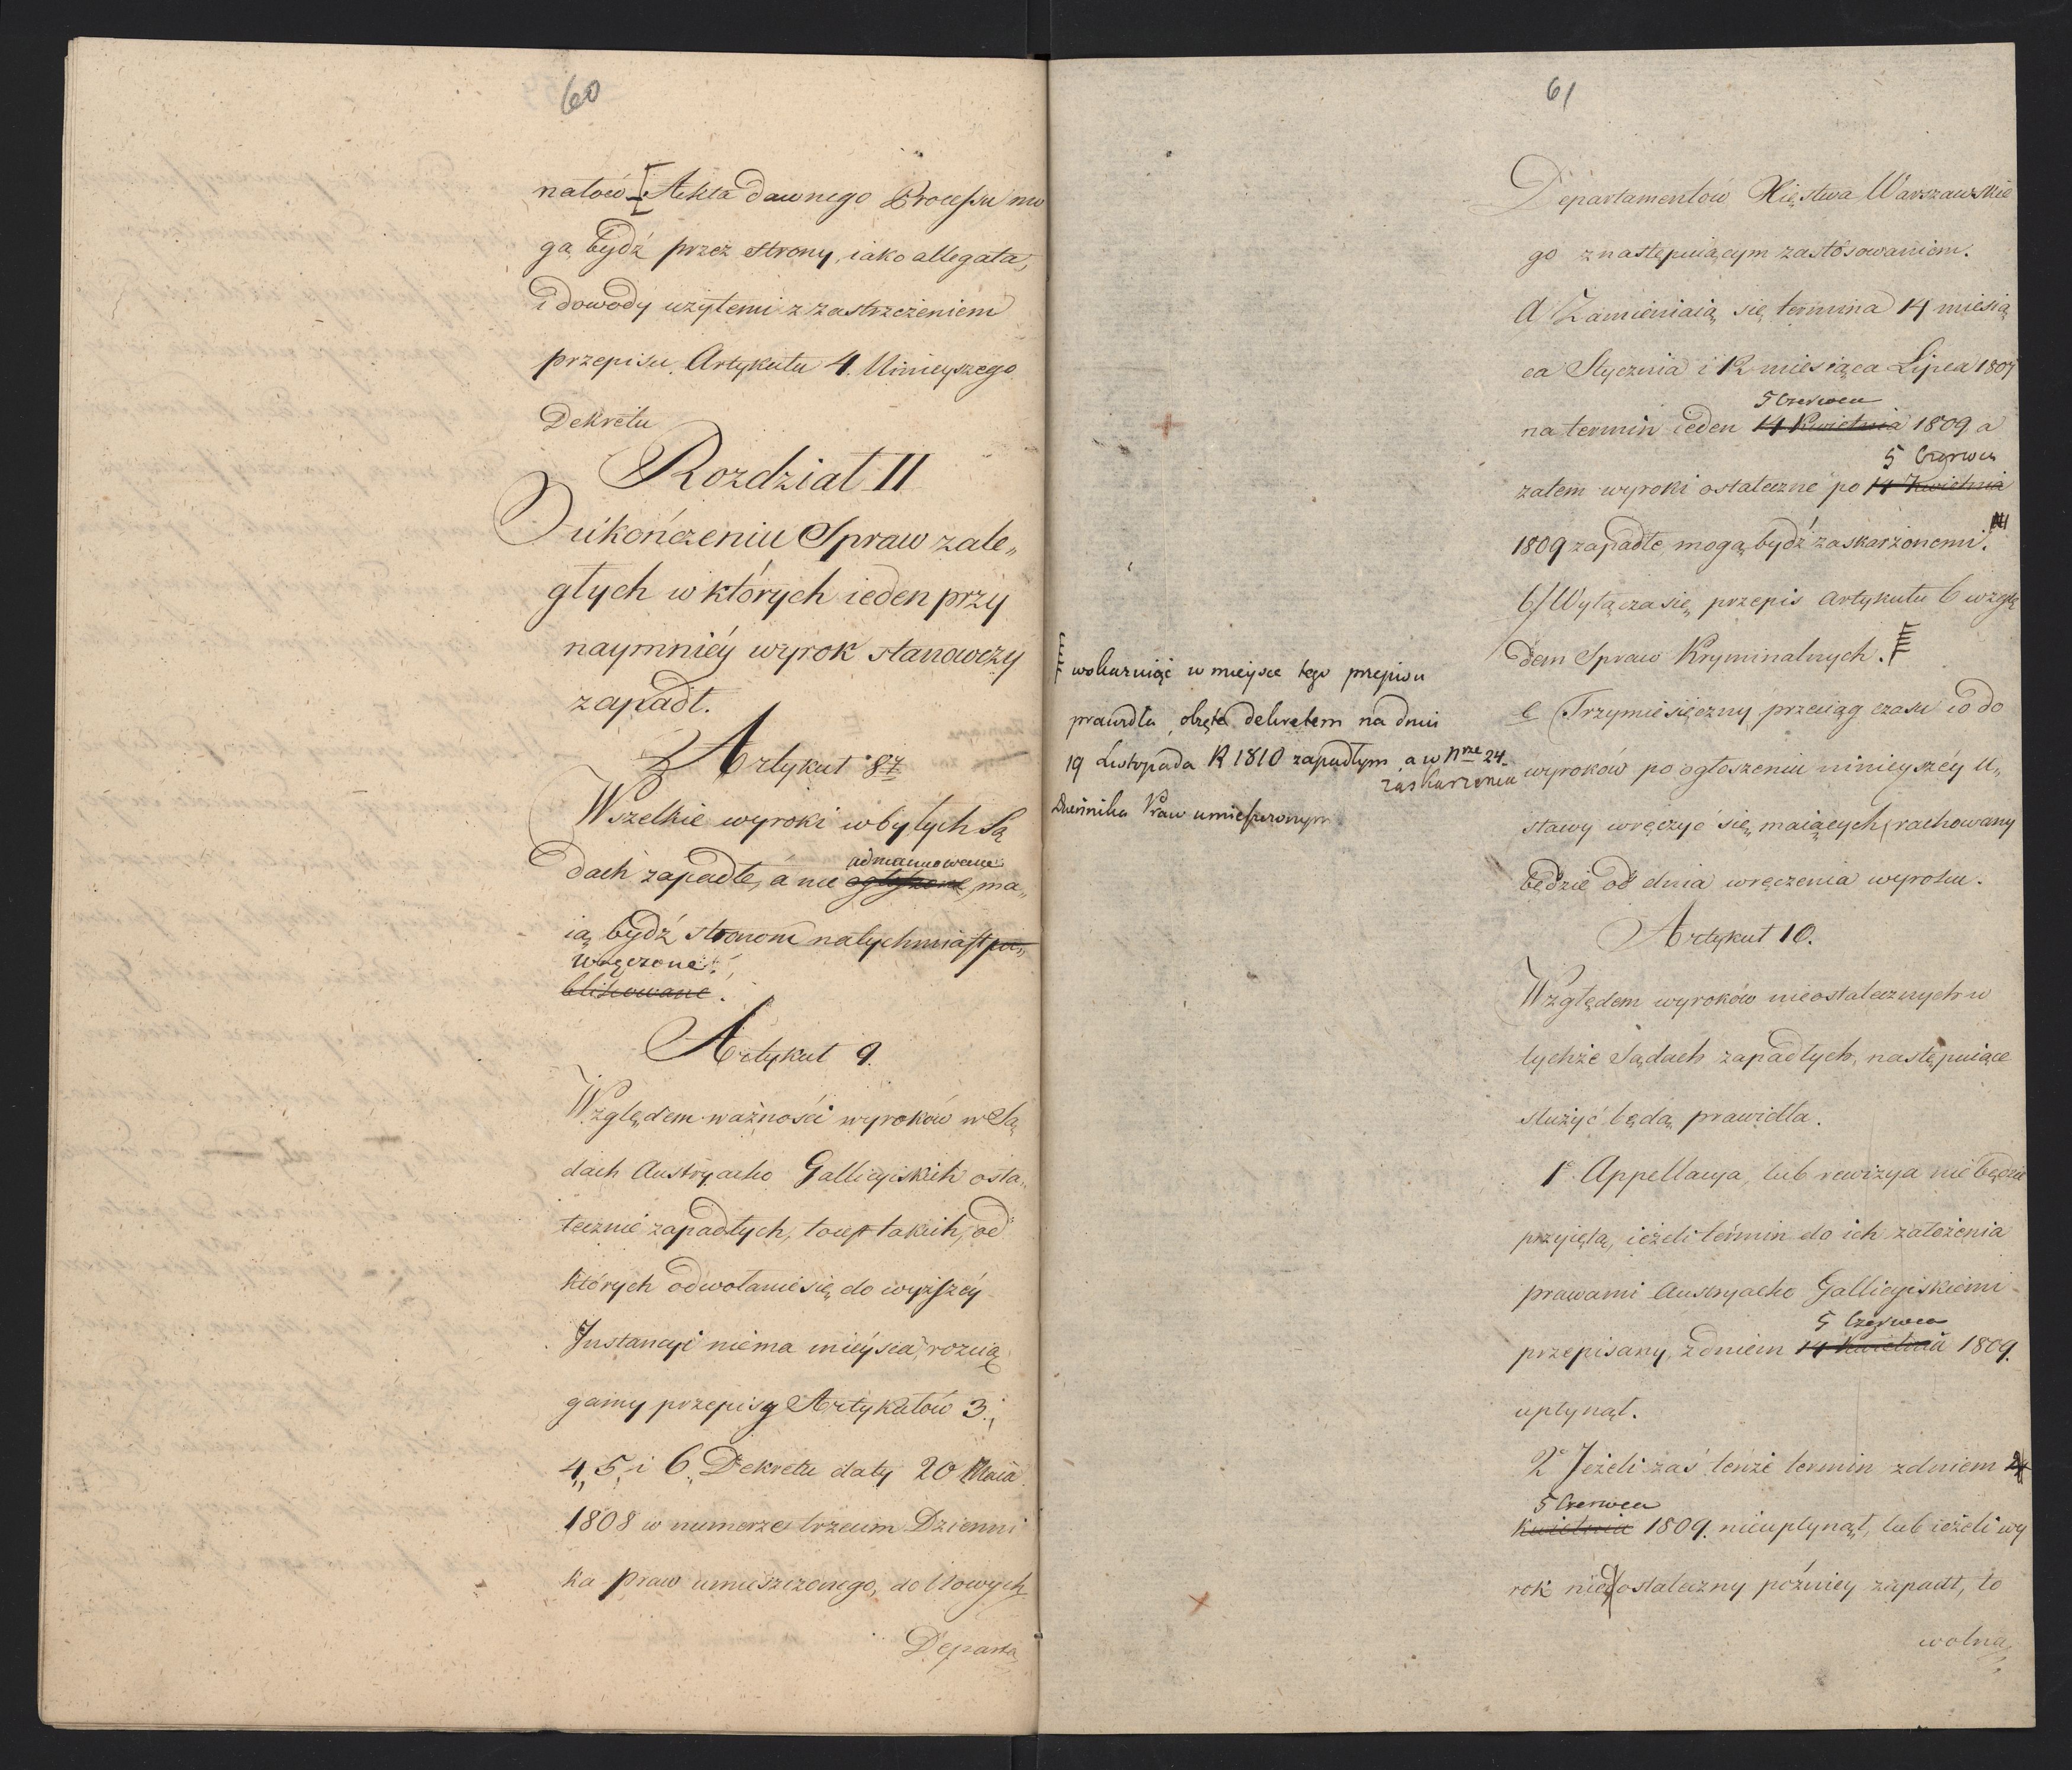 60
natów [Akta dawnego Processu mo
gą bydź przez strony, iako allegata,
i dowody użytemi z zastrzeżeniem
przepisu Artykułu 4. Ninieyszego
Dekretu
Rozdział II
O ukończeniu Spraw zale„
głych w których ieden przy
naymniéy wyrok stanowczy
zapadł.
Artykuł 8y
Wszelkie wyroki w byłych Są
dach zapadłe, a nie ogłoszone, ma„
ią bydź stronom natychmiast pu„
wręczone.
blikowane.
Artykuł 9.
Względem ważności wyroków w Są
dach Austryacko Gallicyiskich osta„
tecznie zapadłych, to iest takich, od
których odwołanie się do wyższéy
Instancyi niema mieysca, rozcią
gamy przepisy Artykułów 3.,
4, 5, i 6. Dekretu daty 20 Maia
1808 w numerze trzecim Dzienni
ka praw umieszczonego, do Nowych
Departa„
61
Departamentów Xięstwa Warszawskie
go z następuiącym zastósowaniem.
a/ Zamieniaią się termina 14 miesią
ca Stycznia i 12 miesiąca Lipca 1807
5 Czerwca
na termin ieden 14 Kwietnia 1809 a
5 Czerwca
zatem wyroki ostateczne po 14 Kwietnia
1809 zapadłe, mogą bydź zaskarżonemi.
b/ Wyłącza się przepis Artykułu 6 wzglę
dem Spraw Kryminalnych.
wskazuiąc w mieysce tego przepisu
prawidła, obięte dekretem na dniu
19 Listopada R 1810 zapadłym a w Nrze 24.
Dziennika Praw umieszczonym
c (Trzymiesięczny przeciąg czasu co do
zaskarżenia
wyroków po ogłoszeniu ninieyszéy U„
stawy wręczyć się maiących, rachowany
będzie od dnia wręczenia wyroku.
Artykuł 10.
Względem wyroków nieostatecznych w
tychże Sądach zapadłych, następuiące
służyć będą prawidła.
1º Appellacya, lub rewizya nie będzie
przyiętą, ieżeli termin do ich założenia
prawami Austryacko Gallicyiskiemi
5 Czerwca
przepisany, z dniem 14 Kwietnia 1809.
upłynął.
2º Jeżeli zaś tenże termin z dniem 14
5 Czerwca
Kwietnia 1809. nieupłynął, lub ieżeli wy
rok nie ostateczny późniéy zapadł, to
wolną